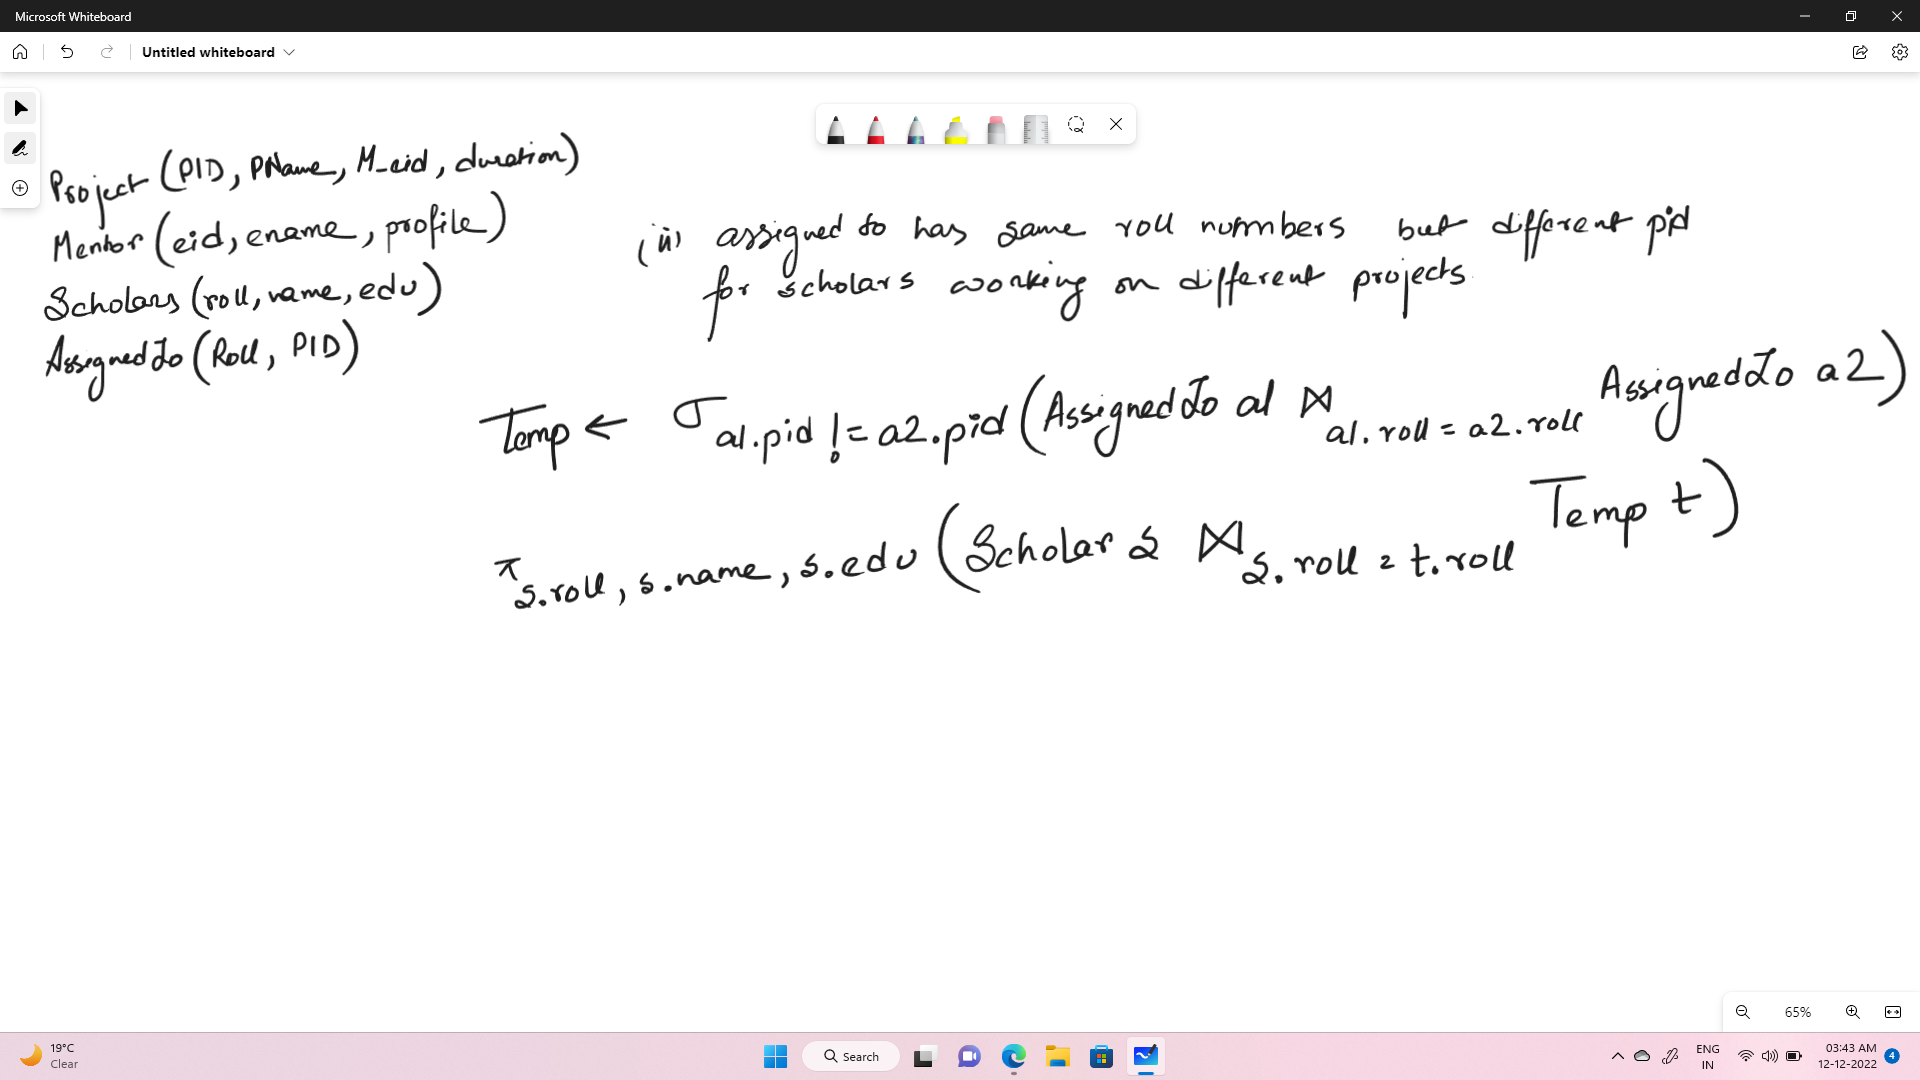 Microsoft Whiteboard
Untitled whiteboard
Project (PID, PName, M_eid, duration)
Mentor (eid, ename, profile)
Scholars (roll, name, edu)
AssignedTo (Roll, PID)
(ii) assigned to has same roll numbers but different pid
for scholars working on different projects.
Temp ← σ a1.pid != a2.pid (AssignedTo a1 ⋈ a1.roll = a2.roll AssignedTo a2)
π s.roll, s.name, s.edu (Scholar s ⋈ s.roll = t.roll Temp t)
65%
19°C
Clear
Search
ENG
IN
03:43 AM
12-12-2022
4